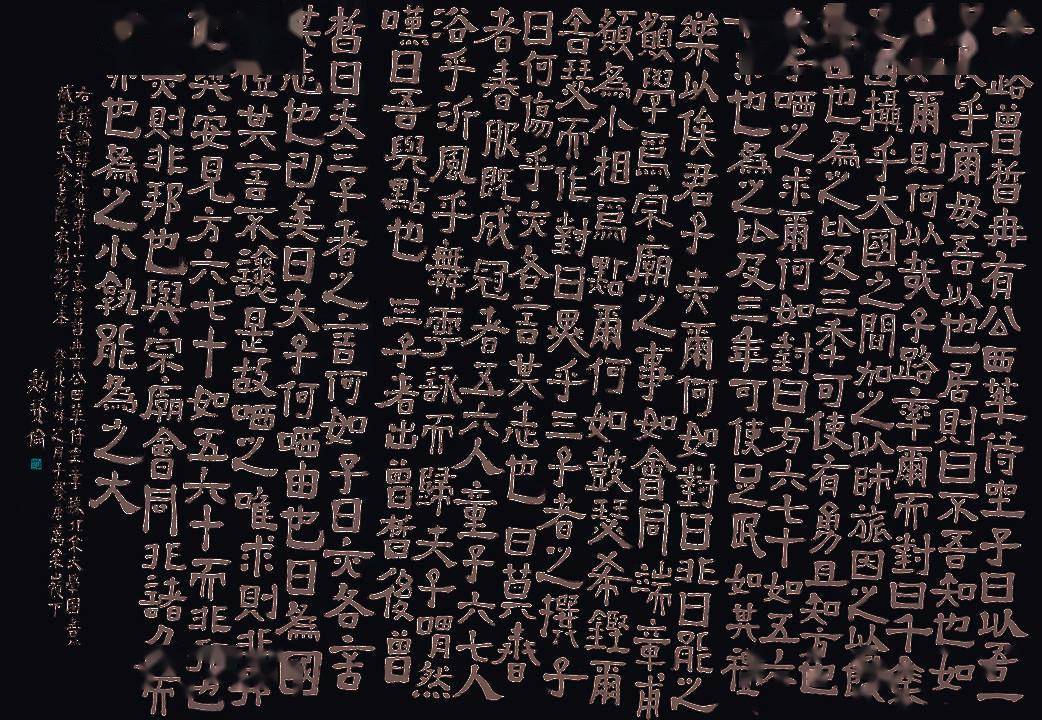 路曾皙冉有公西華侍坐子曰以吾一
乎爾毋吾以也居則曰不吾知也如
爾則何以哉子路率爾而對曰千乘
國攝乎大國之間加之以師旅因之以饑
也為之比及三年可使有勇且知方也
哂之求爾何如對曰方六七十如五六
也為之比及三年可使足民如其禮
樂以俟君子赤爾何如對曰非曰能之
願學焉宗廟之事如會同端章甫
願為小相焉點爾何如鼓瑟希鏗爾
舍瑟而作對曰異乎三子者之撰子
曰何傷乎亦各言其志也曰莫春
者春服既成冠者五六人童子六七人
浴乎沂風乎舞雩詠而歸夫子喟然
嘆曰吾與點也 三子者出曾皙後曾
皙曰夫三子者之言何如子曰亦各言
其志也已矣曰夫子何哂由也曰為國
禮其言不讓是故哂之唯求則非邦
與安見方六七十如五六十而非邦也
赤則非邦也與宗廟會同非諸而
赤也為之小孰能為之大
右錄論語先進第十一子路曾皙冉有公西華侍坐章